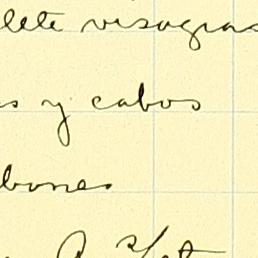 lete visagras
s y cabos
bones